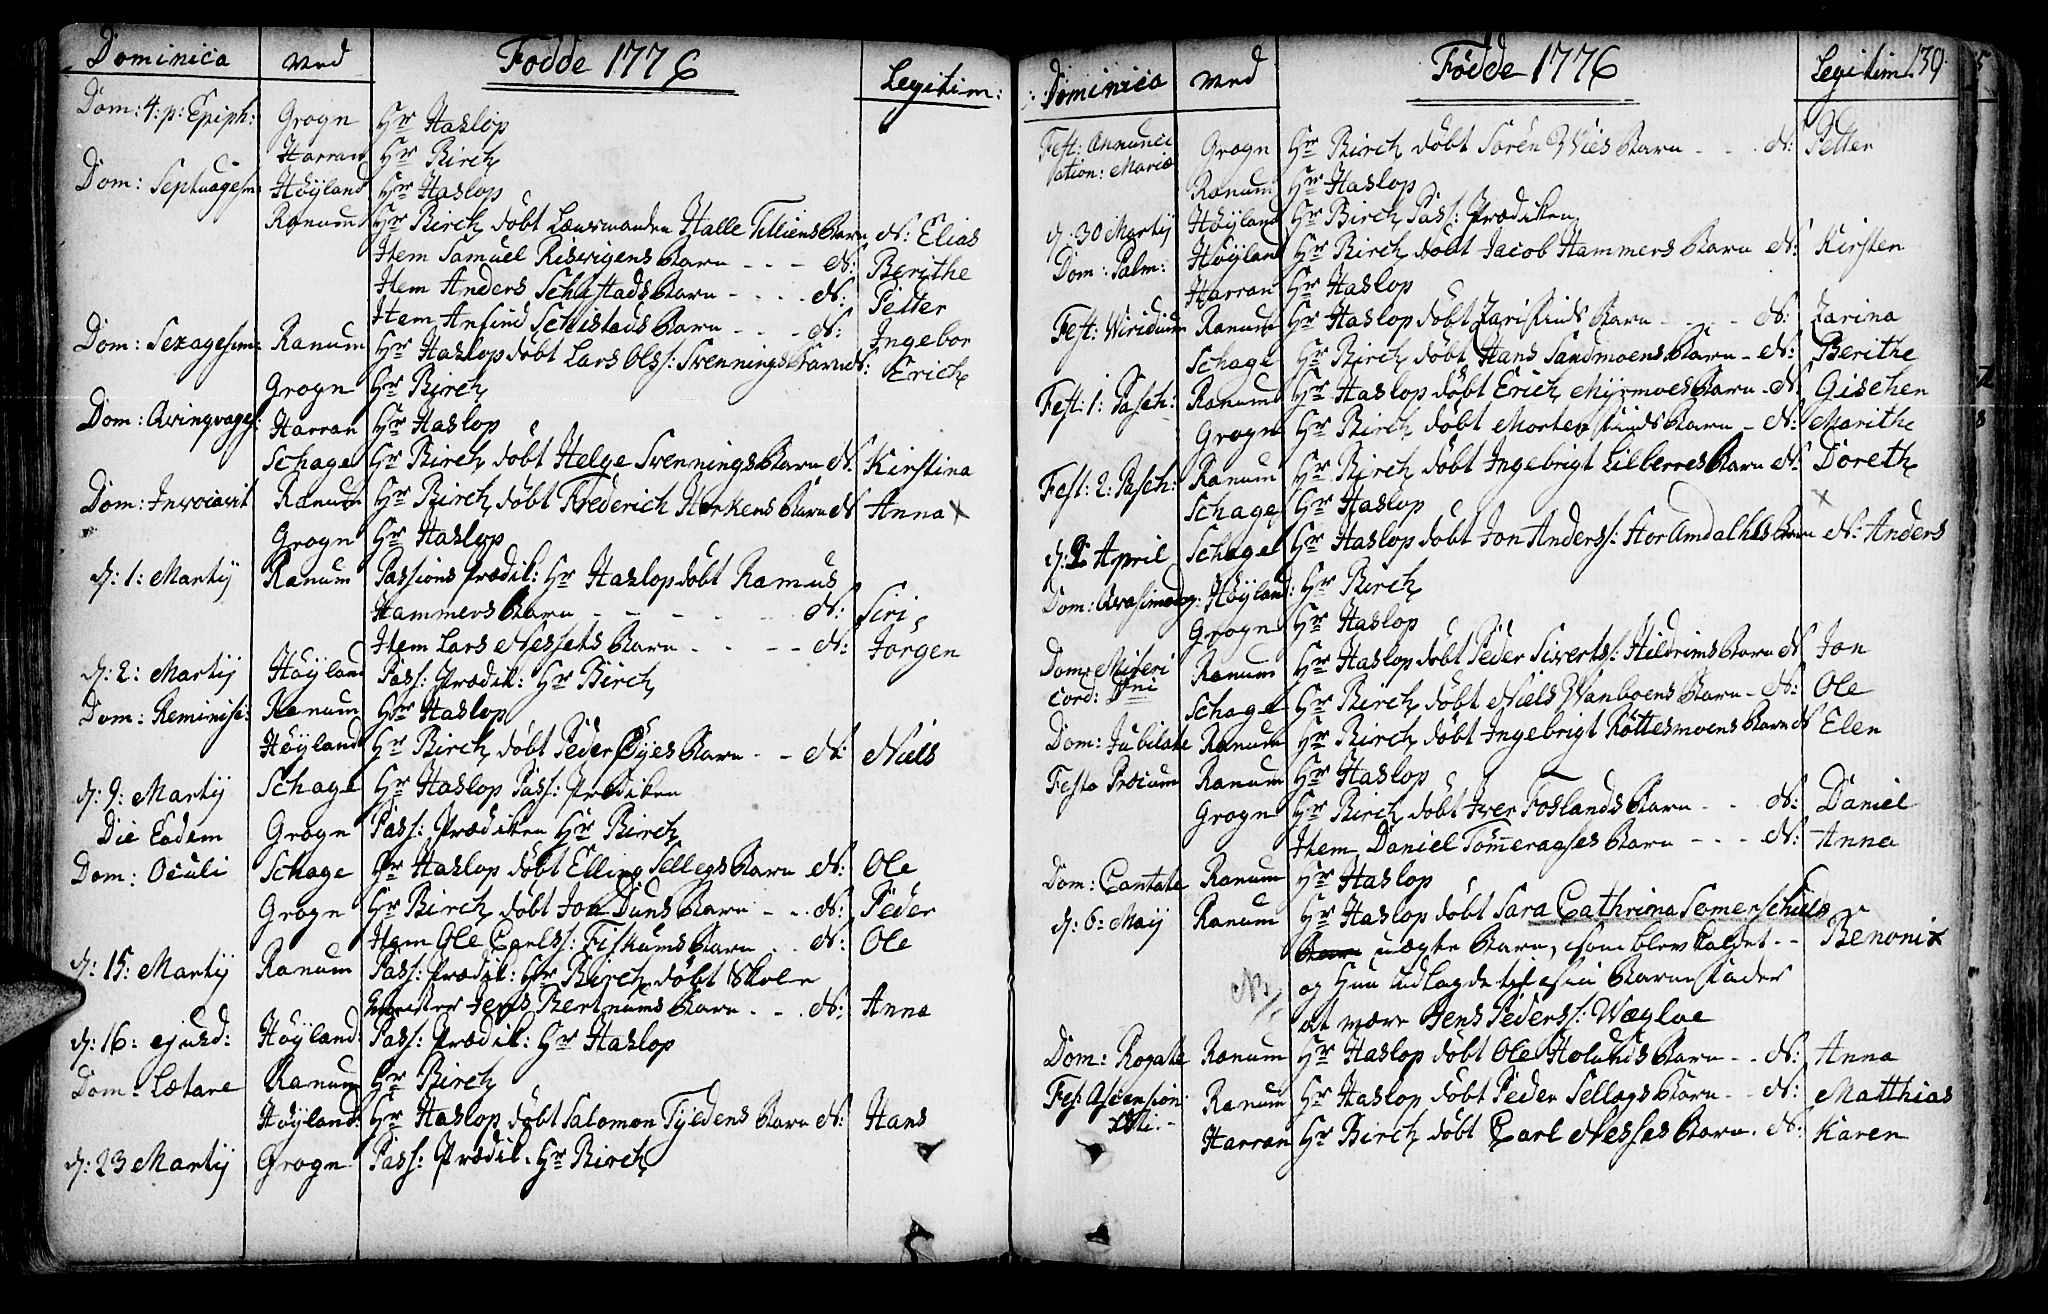 Dominica Ved Fødde 1776 Legitim:
Dom: 4: p: Epiph: Grogn Hr Haslop
Harran Hr Birch
Dom: Septuagesm: Höyland Hr Haslop
Ranum Hr Birch döbt Lænsmanden Halle Tilliens Barn N: Elias
Item Samuel Risvigens Barn - - - N: Berithe
Item Anders Schistads Barn - - - - N: Petter
Item Anfind Schistads Barn - - - N: Ingebor
Dom: Sexagesim: Ranum Hr Haslop döbt Lars Olss: Svennings Barn N: Erich
Grogn Hr Birch
Dom: Qvinqvages: Harran Hr Haslop
Schage Hr Birch döbt Helge Svennings Barn N. Kirstina
Dom: Invocavit Ranum Hr Birch döbt Frederich Horkens Barn N Anna x
Grogn Hr Haslop
d: 1: Martij Ranum Passions Prædik: Hr Haslop döbt Ramus
Hammers Barn - - - - - N: Siri
Item Lars Nessets Barn - - - - N: Jörgen
d: 2: Martij Höyland Pass: Prædik: Hr Birch
Dom: Reminisc: Ranum Hr Haslop
Höyland Hr Birch döbt Peder Öyes Barn - - N: Niels
d: 9: Martij Schage Hr Haslop Pass: Prædiken
Die Eadem Grogn Pass: Prædiken Hr Birch
Dom: Oculi Schage Hr Haslop döbt Elling Sellegs Barn N: Ole
Grogn Hr Birch döbt Jon Duns Barn - - . N: Peder
Item Ole Carlss: Fiskums Barn . . N: Ole
d: 15: Martij Ranum Pass: Prædik: Hr Birch döbt Skole
mester Jens Bertnums Barn - . . N: Anna
d: 16: ejusd: Höyland: Pass: Prædik: Hr Haslop
Dom: Lætare Ranum Hr Birch
Höyland: Hr Haslop döbt Salomon Tyldens Barn N: Hans
d: 23 Martij Grogn Pass: Prædik. Hr Birch
Dominica Ved Födde 1776 Legitim: 139
Fest: Annunci Grogn Hr Birch döbt Sören Vies Barn - - - N: Petter
ation: Mariæ Ranum Hr Haslop
d. 30 Martij Höyland Hr Birch Pass: Prædiken
Dom: Palm: Höyland Hr Birch döbt Jacob Hammers Barn N: Kirsten
Harran Hr Haslop
Fest: Viridium Ranum Hr Haslop döbt Barn - - - - N: Zarina
Schage Hr Birch döbt Hans Sandmoens Barn - N: Berithe
Fest: 1: Pasch: Ranum Hr Haslop döbt Erich Myrmoes Barn - N: Gischen
Grogn Hr Birch döbt Morten Barn - N: Marithe
Fest: 2: Pasch: Ranum Hr Birch döbt Ingebrigt Lilberres Barn N: Doreth
Schage Hr Haslop x
d: 2 April Schage Hr Haslop döbt Jon Anderss: Barn N: Anders
Dom: Qvasimodog: Höyland: Hr Birch
Grogn Hr Haslop
Dom: Miseri Ranum Hr Haslop döbt Peder Siverts: Hildrims Barn N Jon
cord: Dni Schage Hr Birch döbt Niels Vanboens Barn - N: Ole
Dom: Jubilate Ranum Hr Birch döbt Ingebrigt Röttesmoens Barn N Elen
Festo Precum Ranum Hr Haslop
Grogn Hr Birch döbt Iver Foslands Barn - - N: Daniel
Item Daniel Tömeraases Barn - - - N: Anna
Dom: Cantate Ranum Hr Haslop
d: 6: Maij Ranum Hr Haslop döbt Sara Cathrina Somerschields
uægte Barn, som blev kaldet - - Benoni x
og Hun udlagde til sin Barnefader
at være Jens Peders: Vægloe
Dom: Rogate Ranum Hr Haslop döbt Ole Holunds Barn - - N: Anna
Fest: Ascension: Ranum Hr Haslop döbt Peder Sellegs Barn - - N: Matthias
Xsti: - Harran Hr Birch döbt Carl Nesses Barn . N: Karen